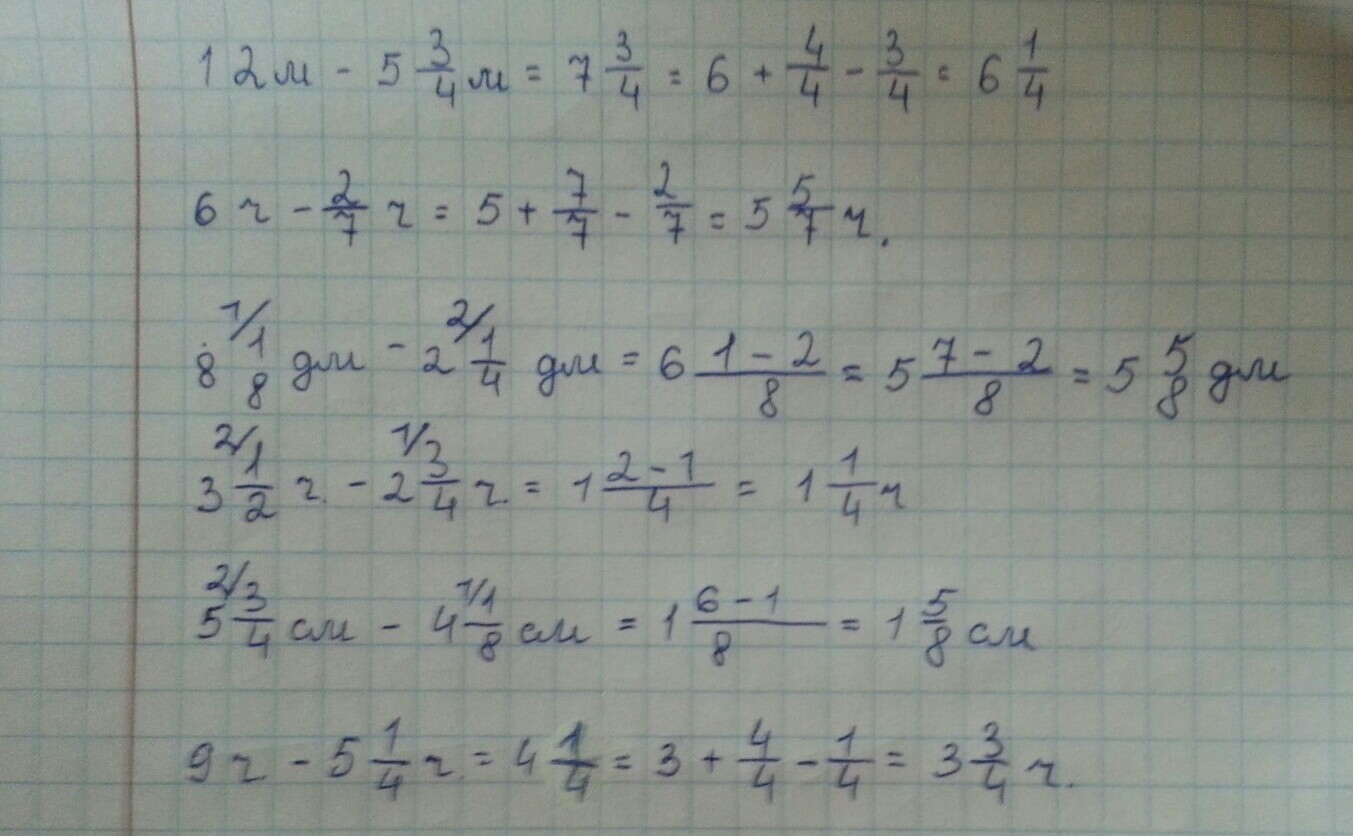 12м - 5 3/4 м = 7 3/4 = 6 + 4/4 - 3/4 = 6 1/4
6 ч - 2/7 ч = 5 + 7/7 - 2/7 = 5 5/7 ч.
8 1/1/8 дм - 2 2/1/4 дм = 6 (1 - 2)/8 = 5 (7 - 2)/8 = 5 5/8 дм
3 2/1/2 ч. - 2 1/3/4 ч. = 1 (2 - 1)/4 = 1 1/4 ч
5 2/3/4 см - 4 1/1/8 см = 1 (6 - 1)/8 = 1 5/8 см
9 ч - 5 1/4 ч. = 4 1/4 = 3 + 4/4 - 1/4 = 3 3/4 ч.